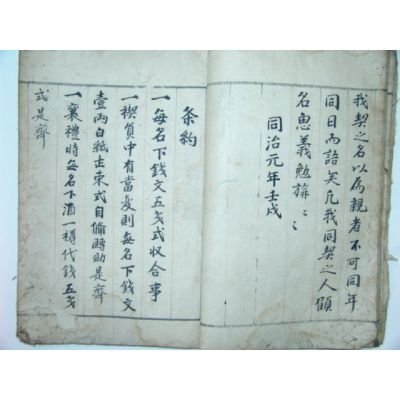 我契之名以為親者不可同年
同日而語矣凡我同契之人顧
名思義勉旃〻〻
同治元年壬戌
条約
一每名下錢文五戔式收合事
一稧員中有當変則每名下錢文
壹兩白紙弍束式自備賻助是齊
一襄禮時每名下酒一樽代錢五戔
式是齊